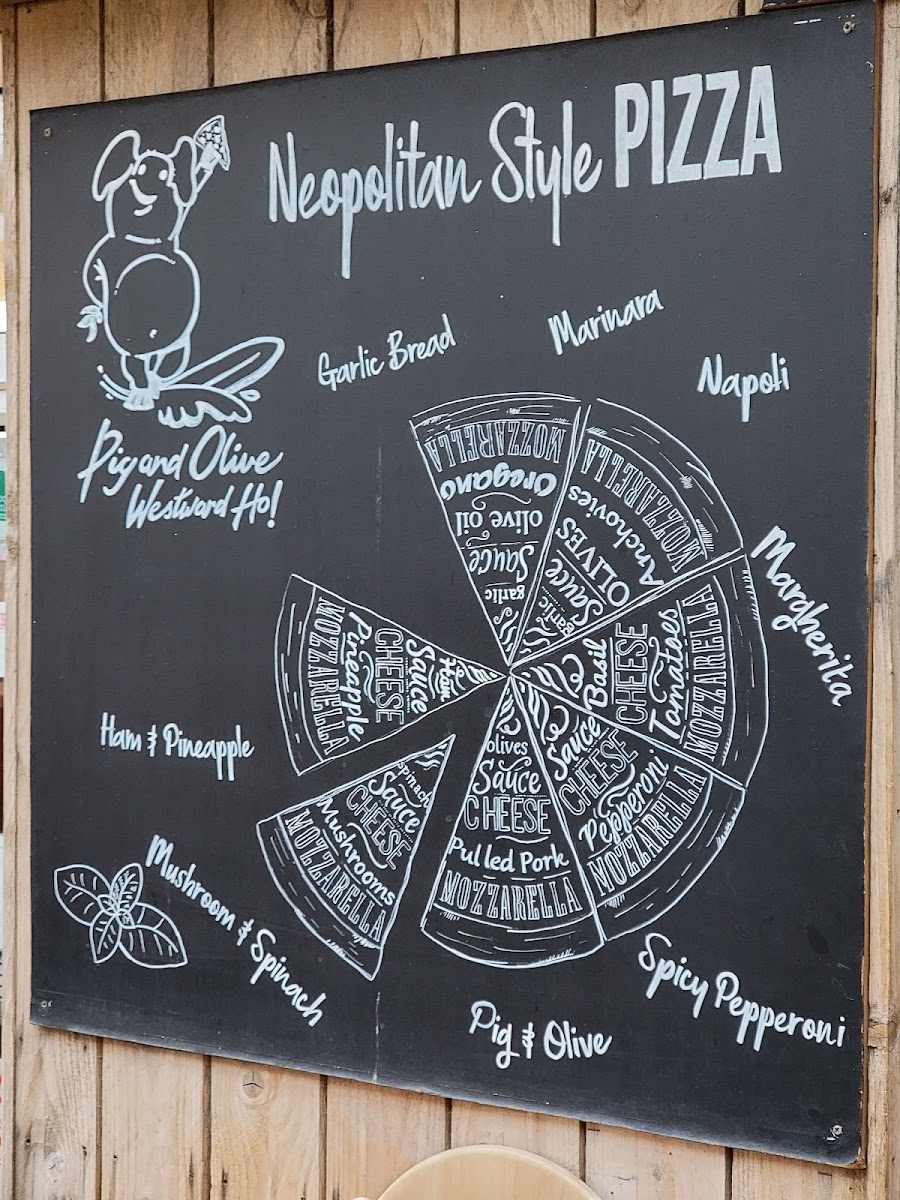 Neopolitan Style PIZZA
Pig and Olive
Westward Ho!
Garlic Bread
Marinara
Napoli
Margherita
Spicy Pepperoni
Pig & Olive
Mushroom & Spinach
Ham & Pineapple
MOZZARELLA
Oregano
olive oil
Sauce
garlic
MOZZARELLA
Anchovies
OLIVES
Sauce
garlic
Basil
CHEESE
Tomatoes
MOZZARELLA
Sauce
CHEESE
Pepperoni
MOZZARELLA
olives
Sauce
CHEESE
Pulled Pork
MOZZARELLA
Spinach
Sauce
CHEESE
Mushrooms
MOZZARELLA
Ham
Sauce
CHEESE
Pineapple
MOZZARELLA